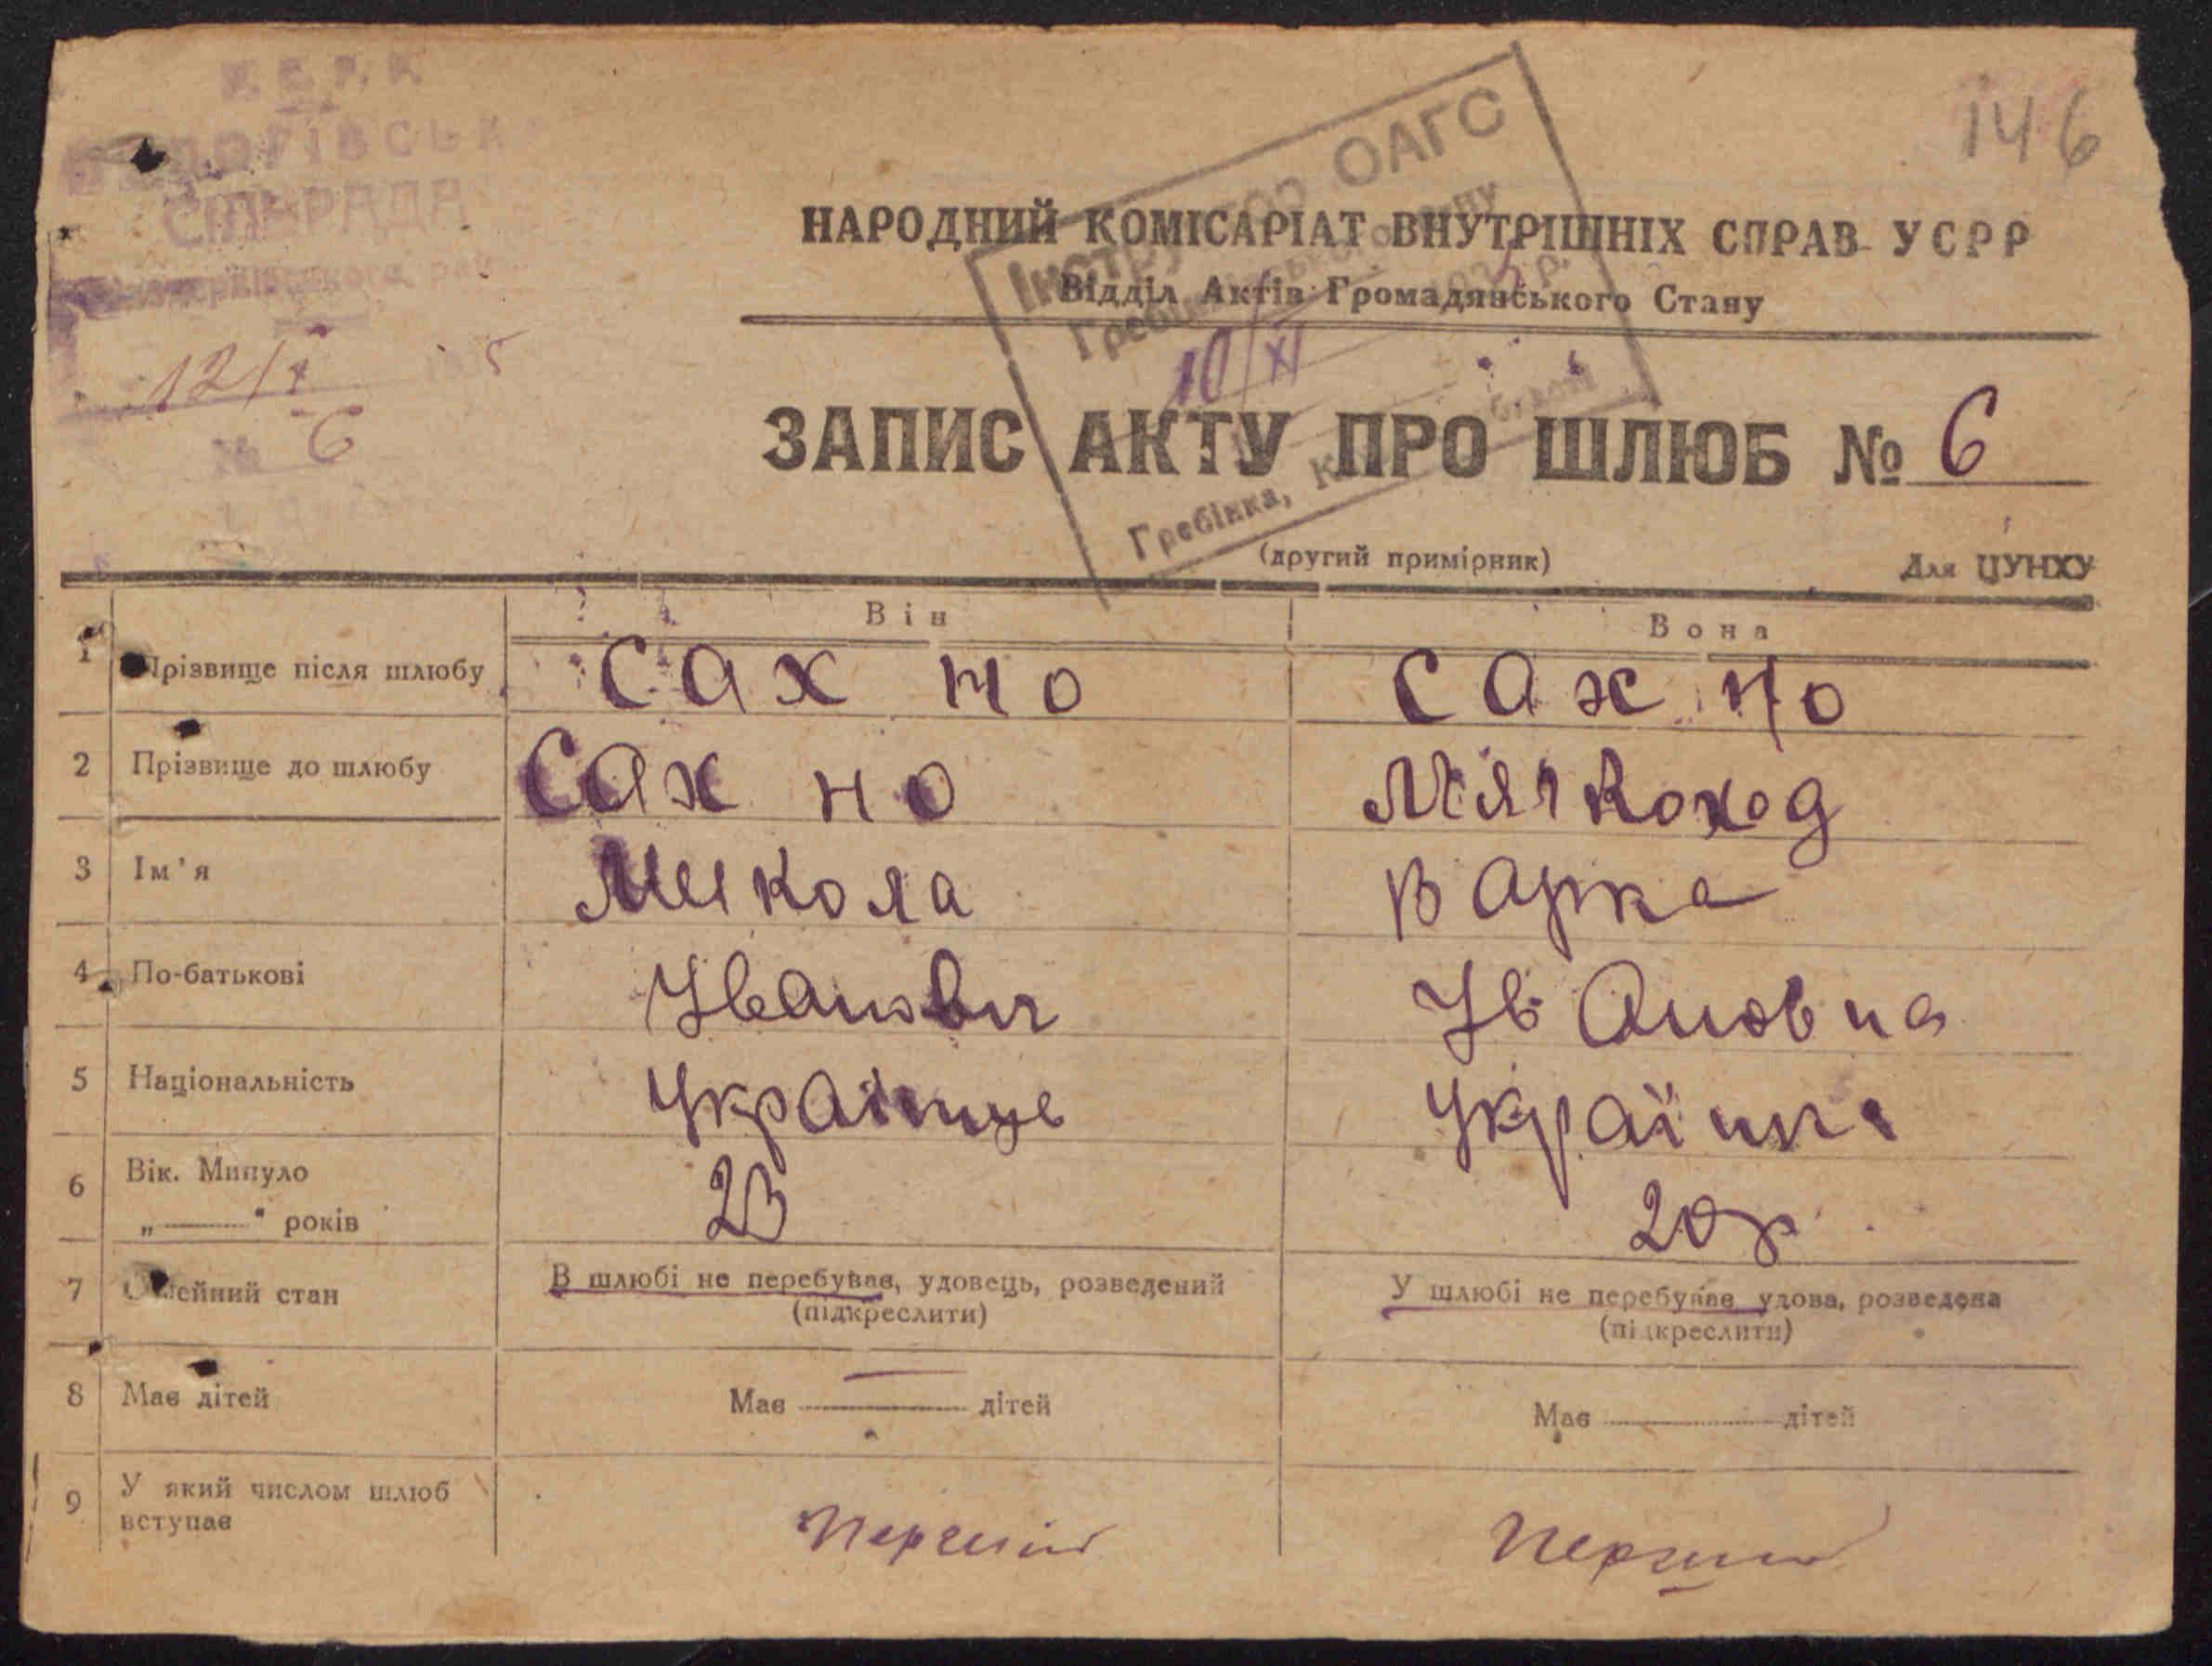 СІЛЬРАДА
12/X 5
№ 6
146
Інструктор ОАГС
10/XI
Гребінка,
НАРОДНИЙ КОМІСАРІАТ ВНУТРІШНІХ СПРАВ УСРР
Відділ Актів Громадянського Стану
ЗАПИС АКТУ ПРО ШЛЮБ № 6
(другий примірник) Для ЦУНХУ
Він Вона
1 Прізвище після шлюбу Сахно Сахно
2 Прізвище до шлюбу Сахно Мʼягкоход
3 Ім'я Микола Варка
4 По-батькові Іванович Івановна
5 Національність Українце Україн
6 Вік. Минуло
„ — " років 23 20р
7 Сімейний стан В шлюбі не перебував, удовець, розведений У шлюбі не перебував удова, розведена
(підкреслити) (підкреслити)
8 Має дітей Має — дітей Має дітей
9 У який числом шлюб
вступає Перший Перший